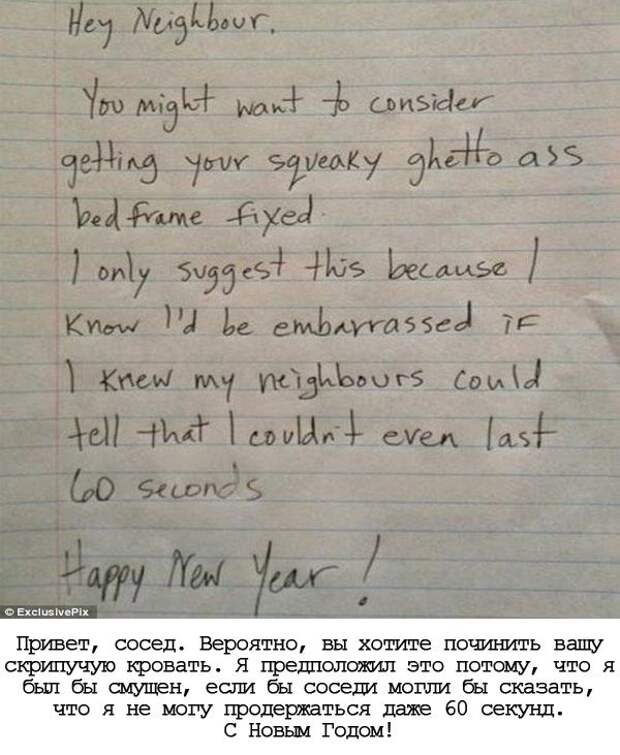 Hey Neighbour,
You might want to consider
getting your squeaky ghetto ass
bedframe fixed.
I only suggest this because I
know I'd be embarrassed if
I knew my neighbours could
tell that I couldn't even last
60 seconds
Happy New Year!
© ExclusivePix
Привет, сосед. Вероятно, вы хотите починить вашу
скрипучую кровать. Я предположил это потому, что я
был бы смущен, если бы соседи могли бы сказать,
что я не могу продержаться даже 60 секунд.
С Новым Годом!